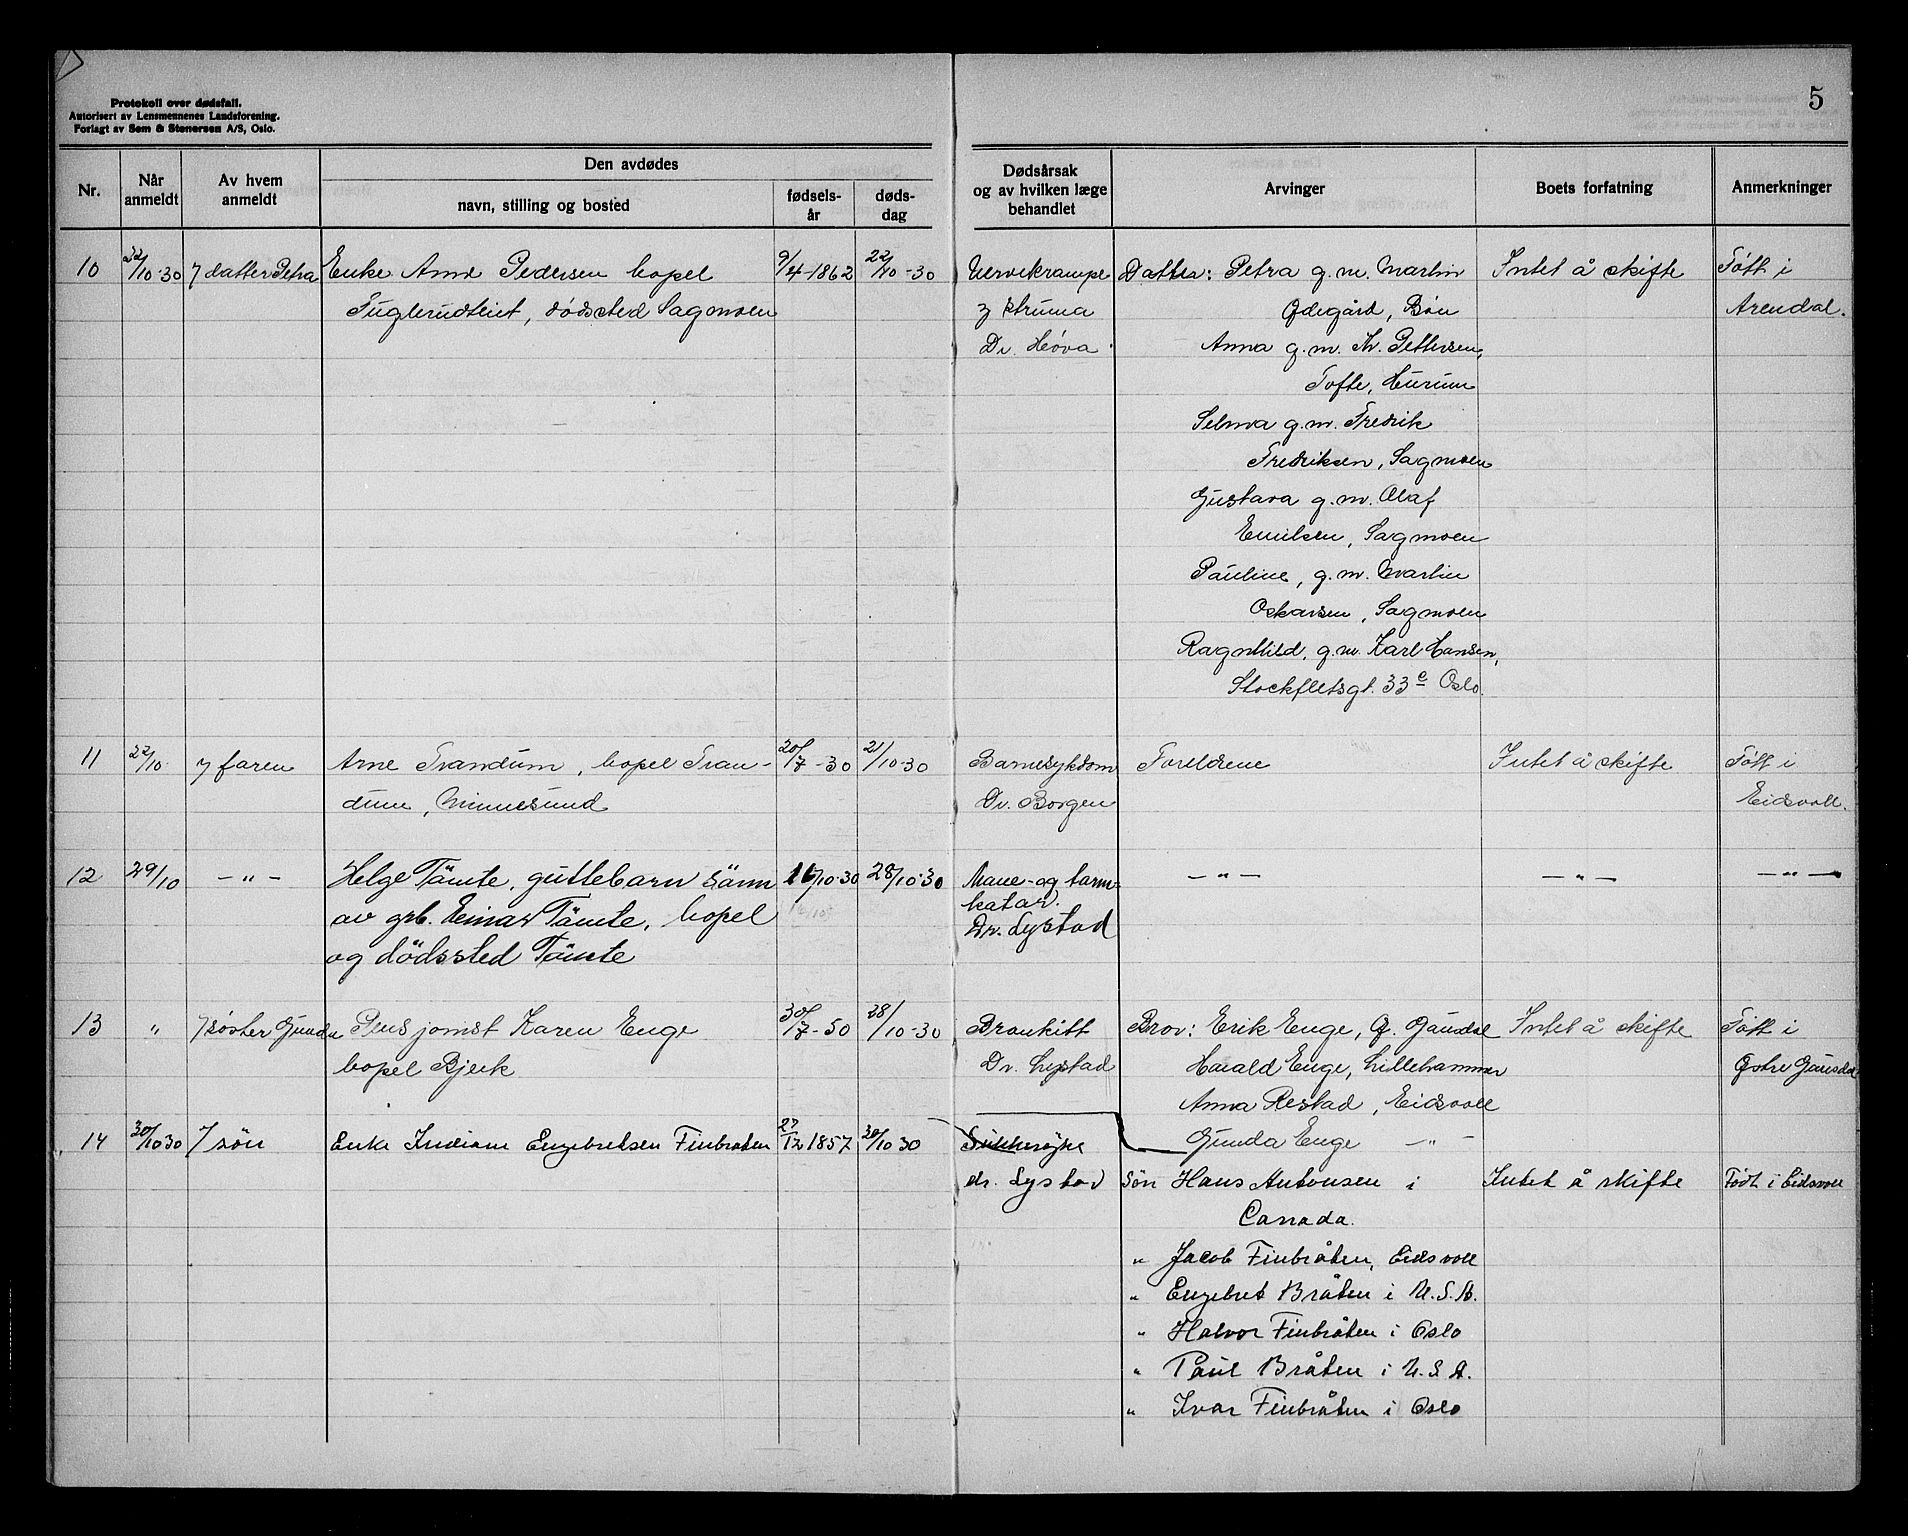 5
Protokoll over dødsfall.
Autorisert av Lensmennenes Landsforening.
Forlagt av Sem & Stenersen A/S, Oslo.
Nr.
Når anmeldt
Av hvem anmeldt
Den avdødes
navn, stilling og bosted
fødsels-år
døds-dag
Dødsårsak og av hvilken læge behandlet
Arvinger
Boets forfatning
Anmerkninger
10 22/10-30 datter Petra Enke Anne Pedersen bopel 9/4-1862 22/10-30 Nervekrampe Datter: Petra g.m. Martin Intet å skifte Født i
Fuglerudteiet, dødsted Sagmoen struma Ødegård, Bøn Arendal.
Dr. Høva Anna g.m. Kr. Pettersen,
Tofte, Hurum
Selma g.m. Fredrik
Fredriksen, Sagmoen
Gustava g.m. Olaf
Emilsen, Sagmoen
Pauline, g.m. Martin
Oskarsen, Sagmoen
Ragnhild, g.m. Karl Hansen,
Stockfletsgt. 33c Oslo.
11 22/10 faren Arne Trandum, bopel Tran- 20/7-30 21/10-30 Barnesykdom Foreldrene Intet å skifte Født i
dum, Minnesund Dr. Borgen Eidsvoll.
12 29/10 -"- Helge Tömte, guttebarn sönn 16/10-30 28/10-30 Mave- og tarm- -"- -"- -"-
av grb. Einar Tömte, bopel katar.
og dödssted Tömte Dr. Lystad
13 " søster Gunda Pensjonist Karen Enge 30/7-50 28/10-30 Bronkitt Bror: Erik Enge, Ø. Gausdal Intet å skifte Født i
bopel Bjerk Dr. Lystad Harald Enge, Lillehammer Østre Gausdal
Anna Restad, Eidsvoll
14 30/10 30 søn Enke Indiane Engebretsen Finbråten 27/12 1857 30/10 30 Sukkersyke Gunda Enge -"-
dr. Lystad Søn Hans Antonsen i Intet å skifte Født i Eidsvoll
Canada.
" Jacob Finbråten, Eidsvoll
" Engebret Bråten i U.S.A.
" Halvor Finbråten i Oslo
" Paul Bråten i U.S.A.
" Ivar Finbråten i Oslo